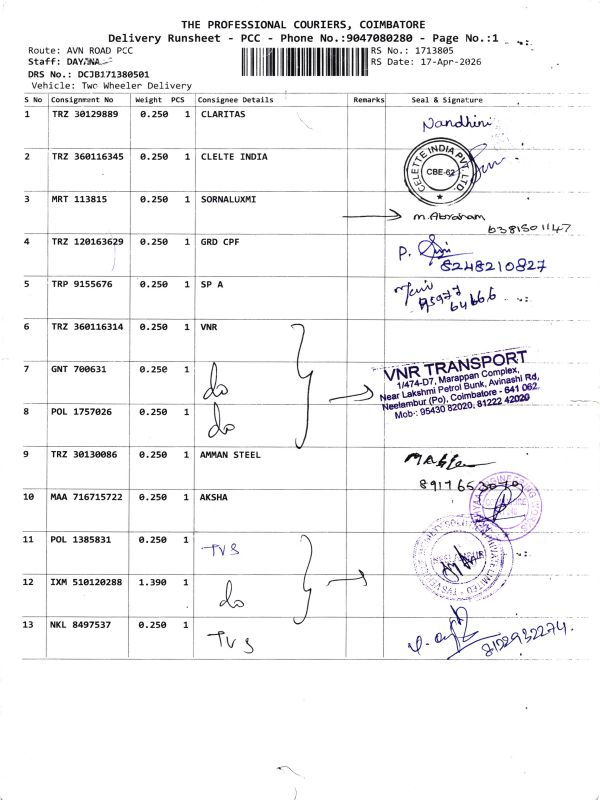 THE PROFESSIONAL COURIERS, COIMBATORE
Delivery Runsheet - PCC - Phone No.:9047080280 - Page No.:1
Route: AVN ROAD PCC RS No.: 1713805
Staff: DAYANA RS Date: 17-Apr-2026
DRS No.: DCJB171380501
Vehicle: Two Wheeler Delivery
S No Consignment No Weight PCS Consignee Details Remarks Seal & Signature
1 TRZ 30129889 0.250 1 CLARITAS Nandhini
2 TRZ 360116345 0.250 1 CLELTE INDIA CELETTE INDIA PVT. LTD. CBE-62
3 MRT 113815 0.250 1 SORNALUXMI m. Abraham
6381501147
4 TRZ 120163629 0.250 1 GRD CPF P.
8248210827
5 TRP 9155676 0.250 1 SP A
64666
6 TRZ 360116314 0.250 1 VNR
7 GNT 700631 0.250 1 do
8 POL 1757026 0.250 1 do
VNR TRANSPORT
1/474-D7, Marappan Complex,
Near Lakshmi Petrol Bunk, Avinashi Rd,
Neelambur (Po), Coimbatore - 641 062.
Mob.: 95430 82020, 81222 42020
9 TRZ 30130086 0.250 1 AMMAN STEEL
10 MAA 716715722 0.250 1 AKSHA
11 POL 1385831 0.250 1 TVS
12 IXM 510120288 1.390 1 do
13 NKL 8497537 0.250 1 TVS